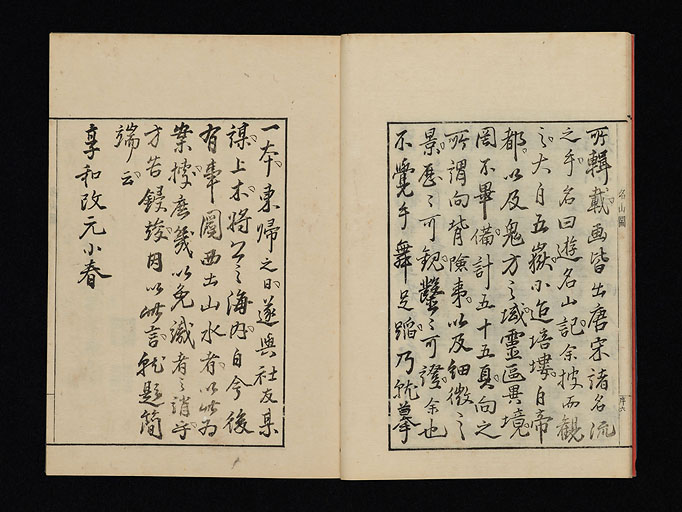 所輯載。画皆出唐宋諸名流
之手。名曰遊名山記。余披而観
之。大自五嶽。小迨培塿。自帝
都。以及鬼方之域。靈區異境。
罔不畢備。計五十五頁。向之
所謂向背險夷。以及細微之
景。歴々可観。鑿々可證。余也
不覺手舞足蹈。乃就摹
名山圖
一本。東歸之日。遂與社友某
謀。上木。將公之海内。自今後
有事圖画山水者。以此為
案據。庶幾以免識者之誚乎。
方告鋟竣。因以此言。就題簡
端云。
享和改元小春